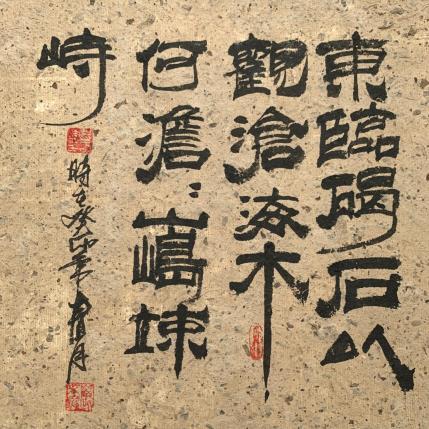 東臨碣石以
觀滄海木
何澹〻山嶋竦
崎
時在癸卯年月